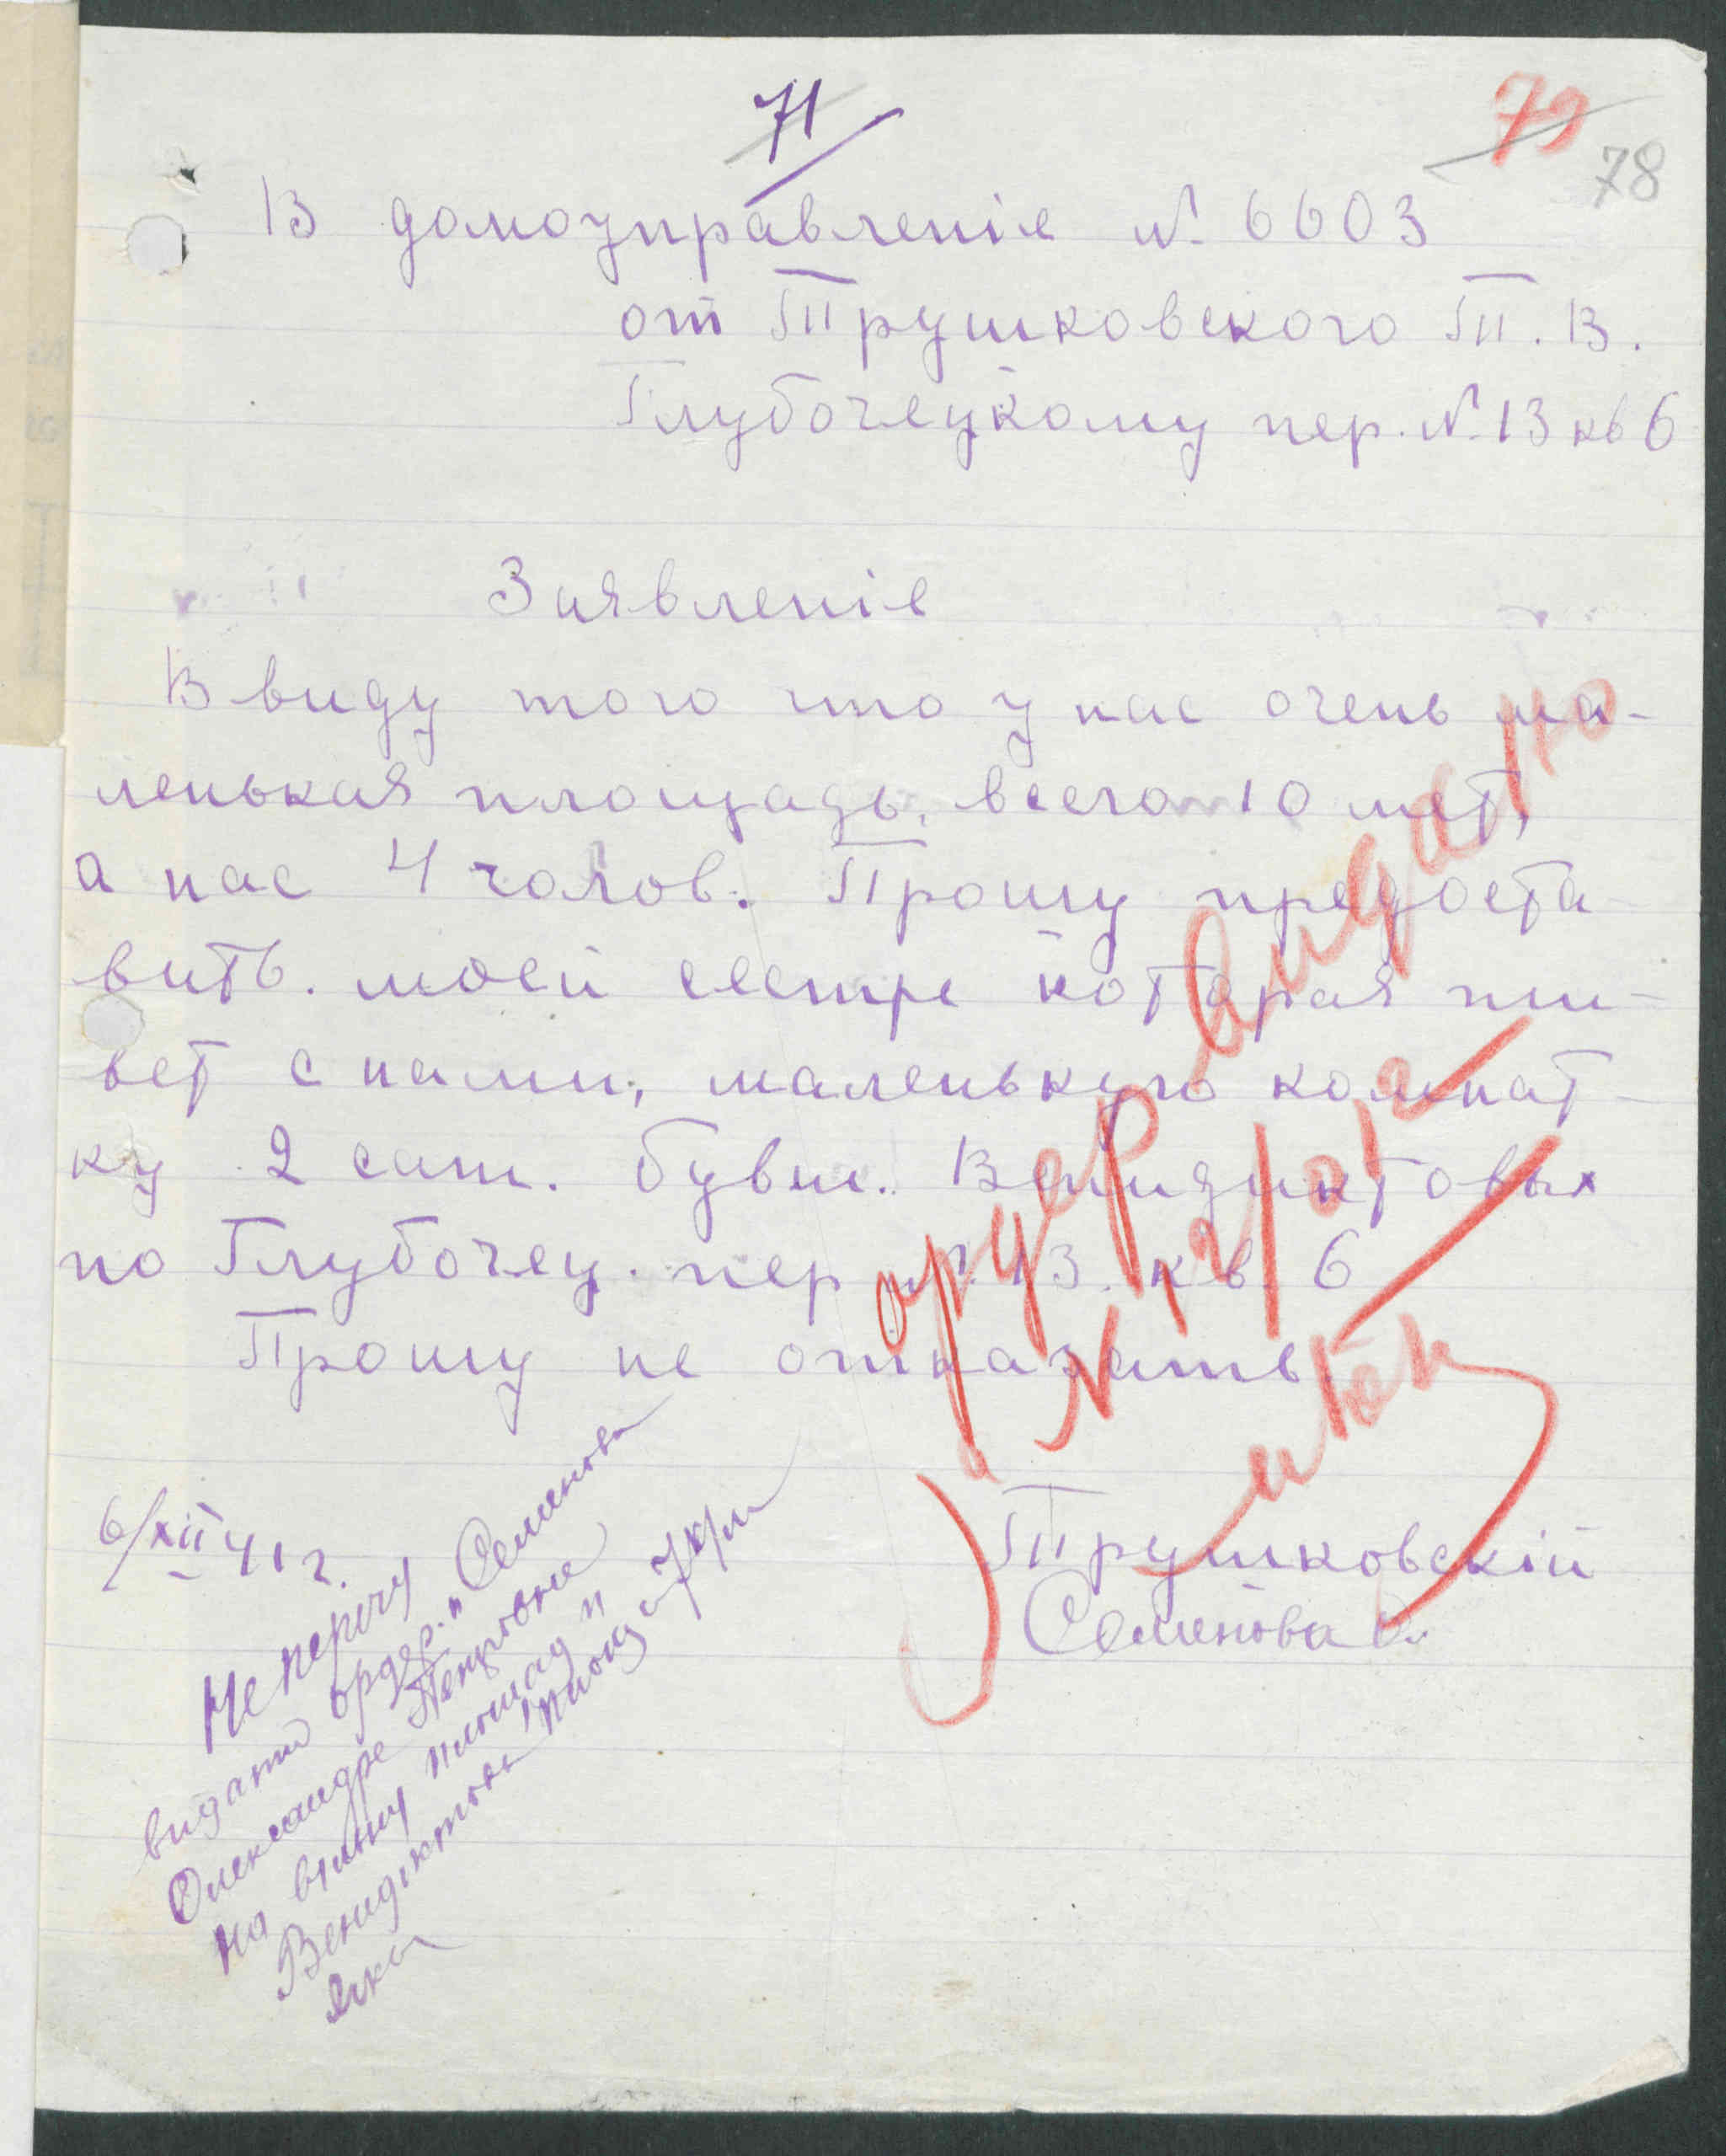 71
79
78
В домоуправленіе №. 6603
от Трушковского П. В.
Глубочецкому пер. №13 кв 6
Заявленіе
В виду того что у нас очень ма-
ленькая площадь, всего 10 мет,
а нас 4 чолов. Прошу предоста-
вить. моей сестре которая жи-
вет с нами, маленькую комнат-
ку 2 саж. бувш. Венидиктовых
по Глубочец. пер №. 13. кв. 6
Прошу не отказать
6/XII 41 г.
Трушковскій
Семенова О.
Не перечу
видати ордер. Семенова
Олександре Петровне
на вршну площад
Венидиктова площ 7 к/м
ордер видано
№ 12/012